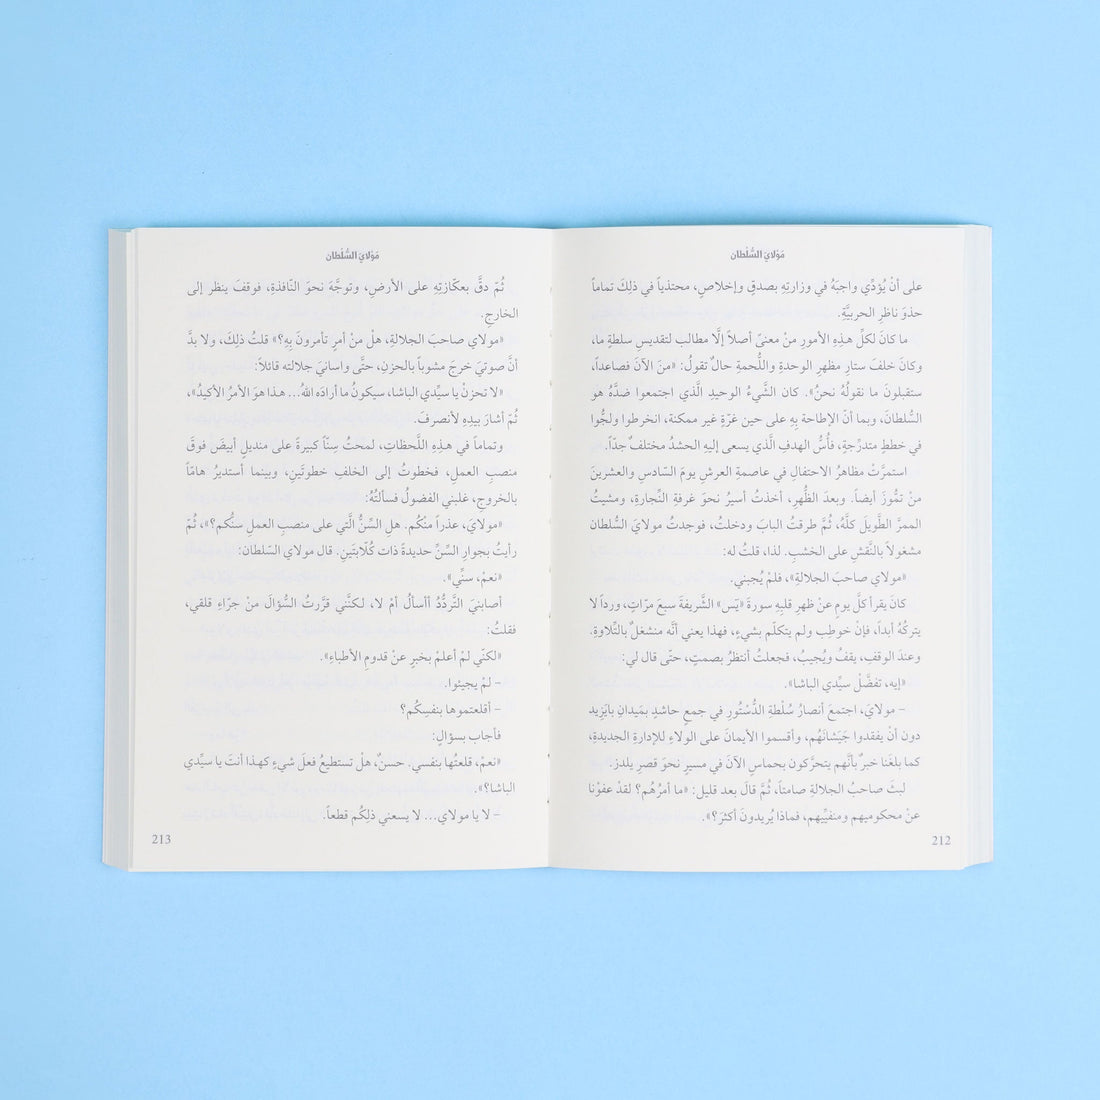 مَوْلايَ السُّلْطان
على أنْ يُؤدِّي واجبَهُ في وزارتِهِ بصدقٍ وإخلاصٍ، محتذياً في ذلِكَ تماماً
حذوَ ناظرِ الحربيَّةِ.
ما كانَ لكلِّ هـذِهِ الأمورِ منْ معنىً أصلاً إلَّا مطالب لتقديسِ سلطةٍ ما،
وكانَ خلفَ ستارِ مظهرِ الوحدةِ واللُّحمةِ حالٌ تقولُ: «منَ الآنَ فصاعداً،
ستقبلونَ ما نقولُهُ نحنُ». كان الشَّيءُ الوحيدُ الَّذي اجتمعوا ضدَّهُ هو
السُّلطانَ، وبما أنَّ الإطاحةَ بِهِ على حين غرّةٍ غير ممكنة، انخرطوا ولجُّوا
في خططٍ متدرِّجةٍ، فأُسُّ الهدفِ الَّذي يسعى إليهِ الحشدُ مختلفٌ جدّاً.
استمرَّتْ مظاهرُ الاحتفالِ في عاصمةِ العرشِ يومَ السّادسِ والعشرينَ
منْ تمُّوزَ أيضاً. وبعدَ الظُّهرِ، أخذتُ أسيرُ نحوَ غرفةِ النِّجارةِ، ومشيتُ
الممرَّ الطَّويلَ كلَّهُ، ثُمَّ طرقتُ البابَ ودخلتُ، فوجدتُ مولايَ السُّلطان
مشغولاً بالنَّقشِ على الخشبِ. لذا، قلتُ له:
«مولاي صاحبَ الجلالةِ»، فلمْ يُجبني.
كانَ يقرأ كلَّ يومٍ عنْ ظهرِ قلبِهِ سورةَ «يٓس» الشَّريفةَ سبعَ مرّاتٍ، ورداً لا
يتركُهُ أبداً، فإنْ خوطِب ولم يتكلّم بشيءٍ، فهذا يعني أنَّه منشغلٌ بالتِّلاوةِ.
وعندَ الوقفِ، يقفُ ويُجيبُ، فجعلتُ أنتظرُ بصمتٍ، حتّى قال لي:
«إيه، تفضَّلْ سيِّدي الباشا».
– مولايَ، اجتمعَ أنصارُ سُلْطةِ الدُّسْتُورِ في جمعٍ حاشدٍ بمَيدانِ بايَزِيد
دون أنْ يفقدوا جَيَشانَهُم، وأقسموا الأيمانَ على الولاءِ للإدارةِ الجديدةِ،
كما بلغَنا خبرٌ بأنَّهم يتحرَّكون بحماسٍ الآنَ في مسيرٍ نحوَ قصرِ يلدز.
لبثَ صاحبُ الجلالةِ صامتاً، ثُمَّ قالَ بعد قليل: «ما أمرُهُم؟ لقدْ عفوْنا
عنْ محكوميهم ومنفيِّيهم، فماذا يُريدونَ أكثرَ؟».
212
مَوْلايَ السُّلْطان
ثُمَّ دقَّ بعكّازتِهِ على الأرضِ، وتوجَّهَ نحوَ النّافذةِ، فوقفَ ينظر إلى
الخارجِ.
«مولاي صاحبَ الجلالةِ، هلْ منْ أمرٍ تأمرونَ بِهِ؟» قلتُ ذلِكَ، ولا بدَّ
أنَّ صوتيَ خرجَ مشوباً بالحزنِ، حتَّى واسانيَ جلالته قائلاً:
«لا تحزنْ يا سيِّدي الباشا، سيكونُ ما أرادَه اللهُ... هذا هوَ الأمرُ الأكيدُ»،
ثُمَّ أشارَ بيدِهِ لأنصرفَ.
وتماماً في هـذِهِ اللَّحظاتِ، لمحتُ سِنّاً كبيرةً على منديلٍ أبيضَ فوقَ
منصبِ العملِ، فخطوتُ إلى الخلفِ خطوتَينِ، وبينما أستديرُ هامّاً
بالخروجِ، غلبني الفضولُ فسألتُهُ:
«مولايَ، عذراً منْكُم. هلِ السِّنُّ الَّتي على منصبِ العملِ سنُّكم؟»، ثُمَّ
رأيتُ بجوارِ السِّنِّ حديدةً ذات كُلّابَتَينِ. قال مولاي السّلطان:
«نعمْ، سنِّي».
أصابنيَ التَّردُّدُ أأسألُ أمْ لا، لـكنَّني قرَّرتُ السُّؤالَ منْ جرّاءِ قلقي،
فقلتُ:
«لكنّي لمْ أعلمْ بخبرٍ عنْ قدومِ الأطباءِ».
– لمْ يجيئوا.
– أقلعتموها بنفسِكُم؟
فأجاب بسؤالٍ:
«نعمْ، قلعتُها بنفسي. حسنٌ، هلْ تستطيعُ فعلَ شيءٍ كهذا أنتَ يا سيِّدي
الباشا؟».
– لا يا مولاي... لا يسعني ذلِكُم قطعاً.
213